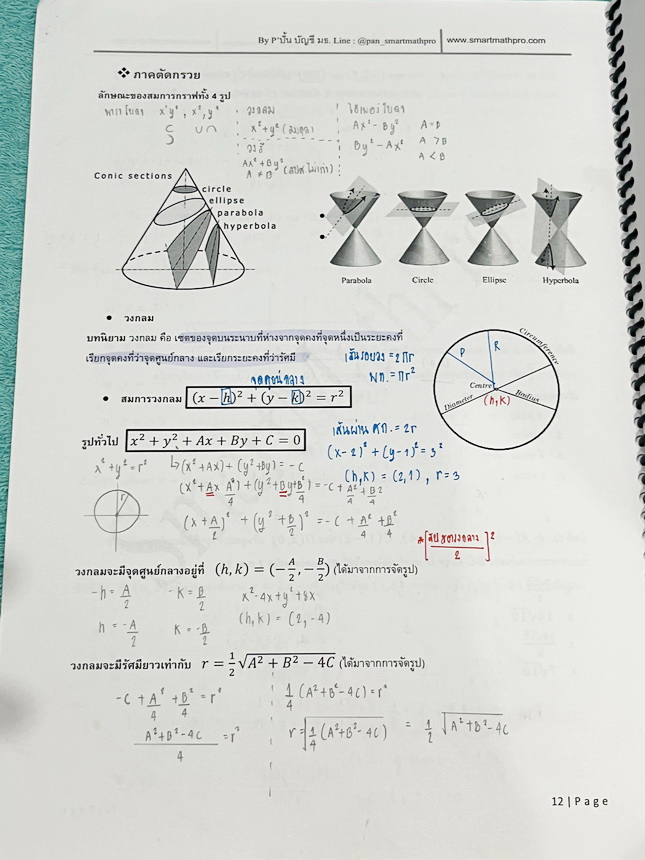 By P'ปั้น บัญชี มธ. Line : @pan_smartmathpro | www.smartmathpro.com
❖ ภาคตัดกรวย
ลักษณะของสมการกราฟทั้ง 4 รูป
พาราโบลา x²y², x², y²
วงกลม
x²+y² (สมดุล)
วงรี
Ax²+By²
A ≠ B
ไฮเพอร์โบลา
Ax² - By² A = B
By² - Ax² A > B
A < B
Conic sections
circle
ellipse
parabola
hyperbola
Parabola Circle Ellipse Hyperbola
• วงกลม
บทนิยาม วงกลม คือ เซตของจุดบนระนาบที่ห่างจากจุดคงที่จุดหนึ่งเป็นระยะคงที่
เรียกจุดคงที่ว่าจุดศูนย์กลาง และเรียกระยะคงที่ว่ารัศมี
เส้นรอบวง = 2πr
พท. = πr²
Circumference
P R
Centre
(h,k)
Diameter
Radius
จุดศูนย์กลาง
• สมการวงกลม (x − h)² + (y − k)² = r²
เส้นผ่าน ศก. = 2r
รูปทั่วไป x² + y² + Ax + By + C = 0
(x-2)² + (y-1)² = 3²
(h,k) = (2,1) , r = 3
x² + y² = r²
r
(x²+Ax) + (y²+By) = -C
(x²+Ax A²/4) + (y²+By+B²/4) = -C + A²/4 + B²/4
(x+A/2)² + (y²+B/2)² = -C + A²/4 + B²/4
วงกลมจะมีจุดศูนย์กลางอยู่ที่ (h, k) = (−A/2, −B/2) (ได้มาจากการจัดรูป)
-h = A/2 -k = B/2 x²-4x+y²+8x
h = -A/2 k = -B/2 (h,k) = (2,-4)
วงกลมจะมีรัศมียาวเท่ากับ r = 1/2 √A² + B² − 4C (ได้มาจากการจัดรูป)
-C + A²/4 + B²/4 = r²
A²+B²-4C/4 = r²
1/4 (A²+B²-4C) = r²
r = √1/4 (A²+B²-4C) = 1/2 √A²+B²-4C
12 | Page